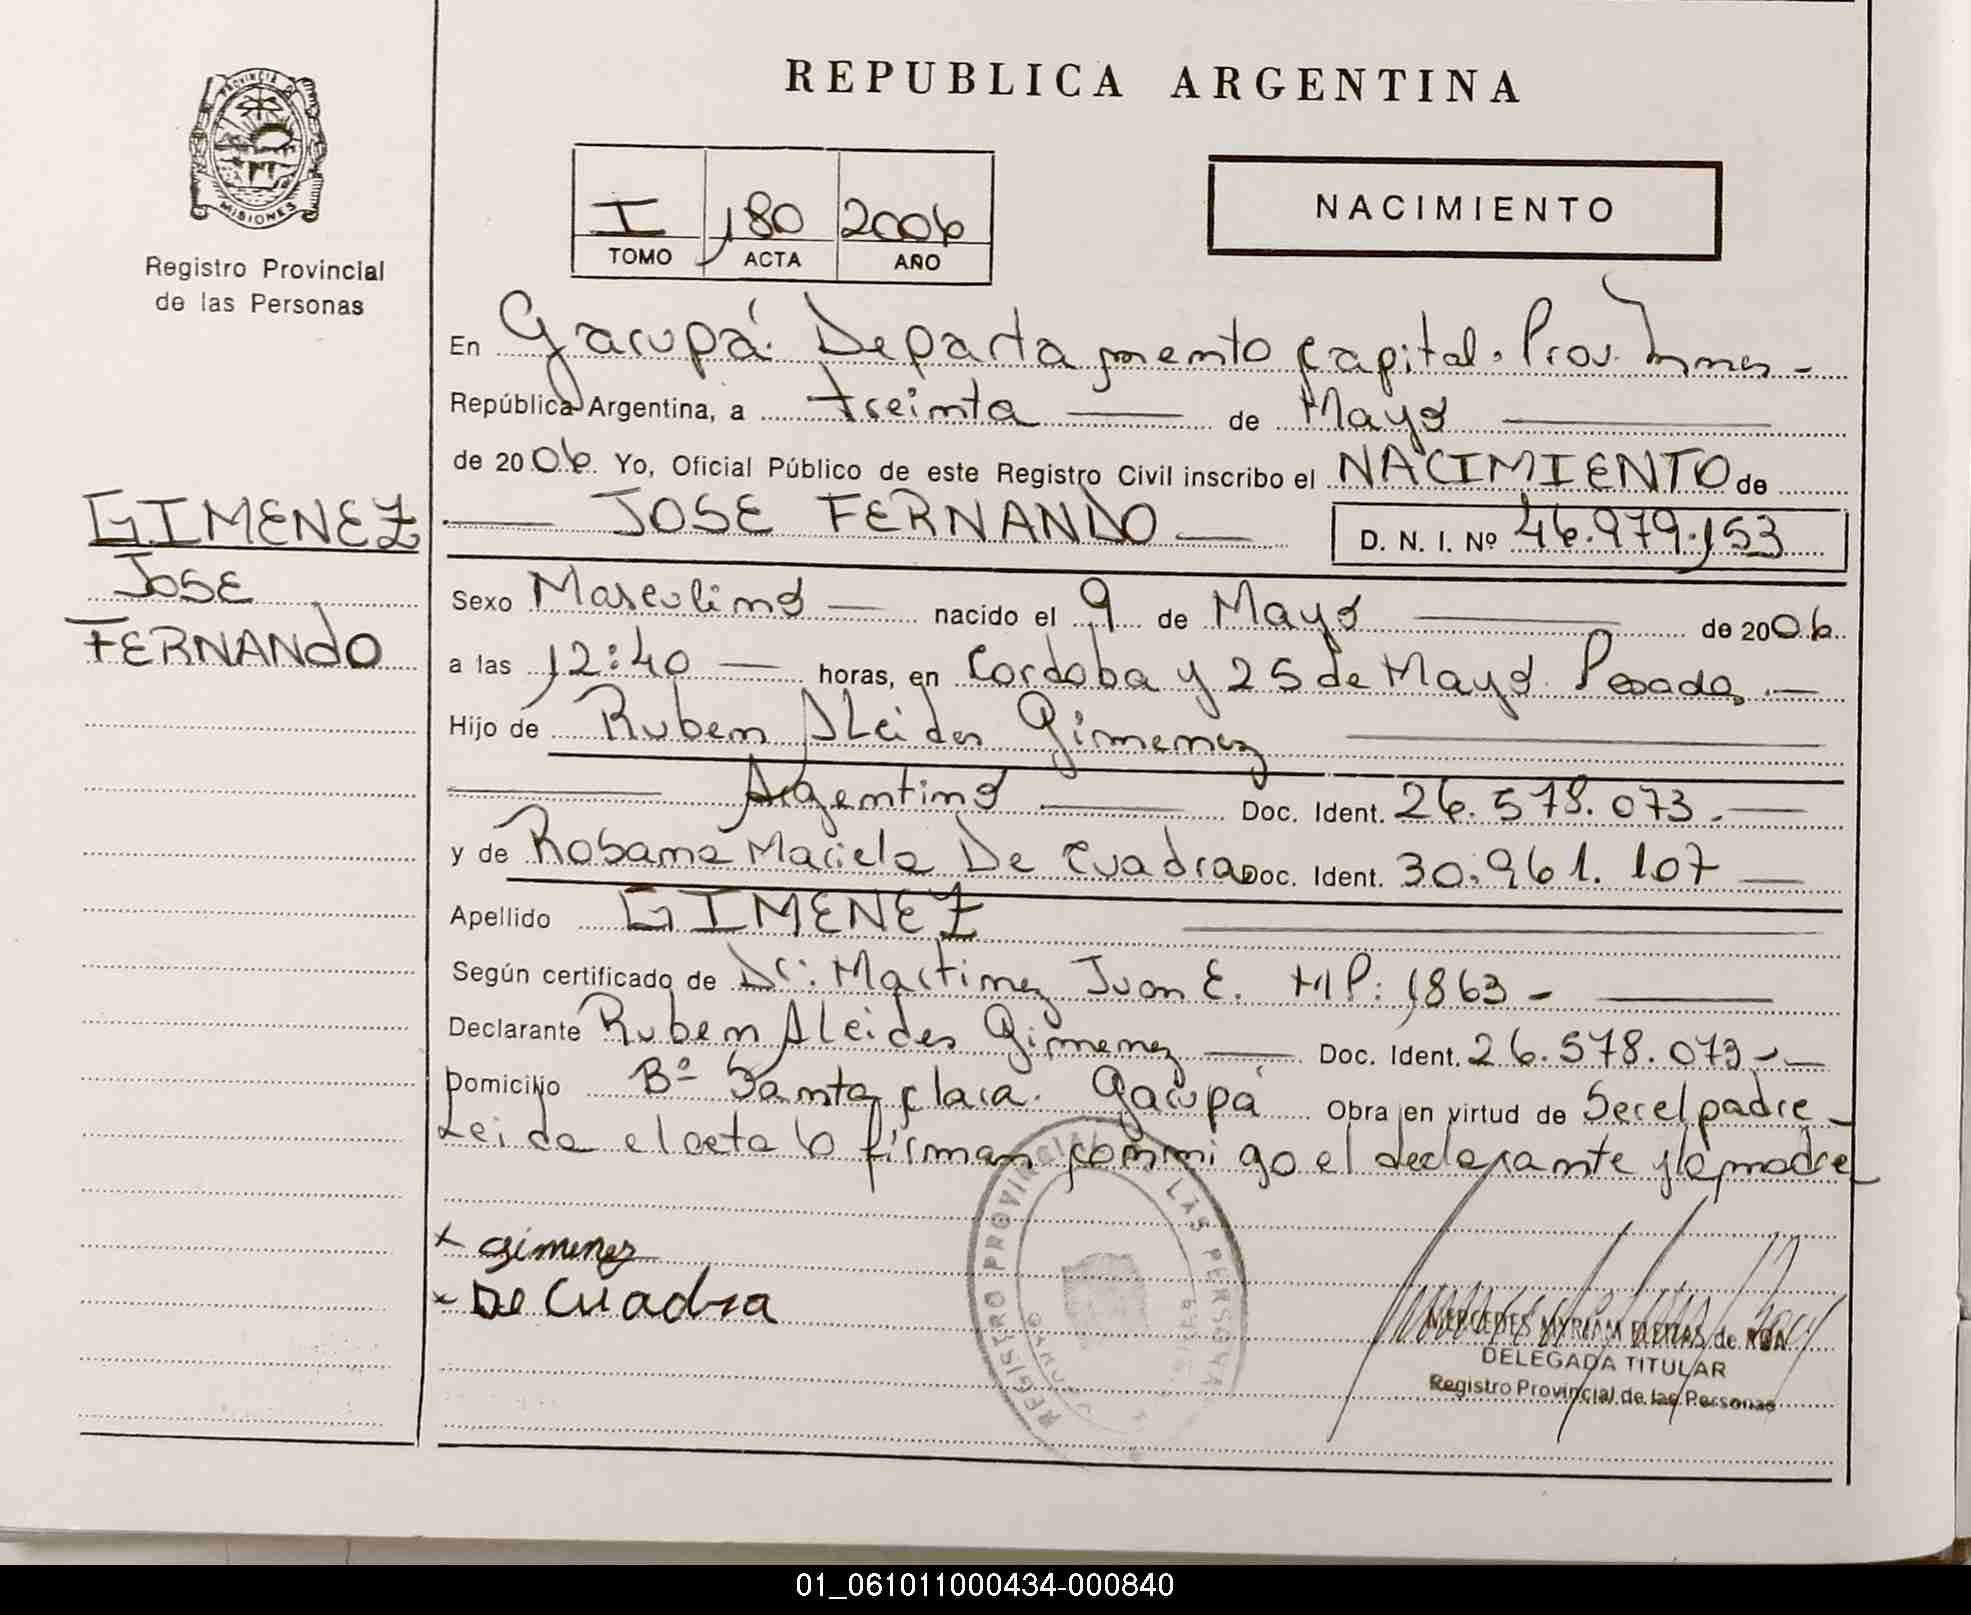 REPUBLICA ARGENTINA
PROVINCIA D
MISIONES
Registro Provincial
de las Personas
I 180 2006
TOMO ACTA AÑO
NACIMIENTO
En Garupá. Departamento Capital. Prov. Mnes -
República Argentina, a treinta de Mayo
de 2006. Yo, Oficial Público de este Registro Civil inscribo el NACIMIENTO de
GIMENEZ
JOSE
FERNANDO
JOSE FERNANDO D. N. I. Nº 46.979.153
Sexo Masculino nacido el 9 de Mayo de 2006
a las 12:40 horas, en Cordoba y 25 de Mayo. Posadas.
Hijo de Ruben Alcides Gimenez
Argentino Doc. Ident. 26.578.073.
y de Rosana Mariela De Cuadra Doc. Ident. 30.961.107
Apellido GIMENEZ
Según certificado de Dr: Martinez Juan E. MP: 1863 -
Declarante Ruben Alcides Gimenez Doc. Ident. 26.578.073 -
Domicilio Bº Santa Clara. Garupá Obra en virtud de Ser el padre
Leida el acta lo firman conmigo el declarante y la madre
x Gimenez
x De Cuadra
REGISTRO PROVINCIAL LAS PERSONA
MERCEDES MYRIAM FLEITAS de ROA
DELEGADA TITULAR
Registro Provincial de las Personas
01_061011000434-000840